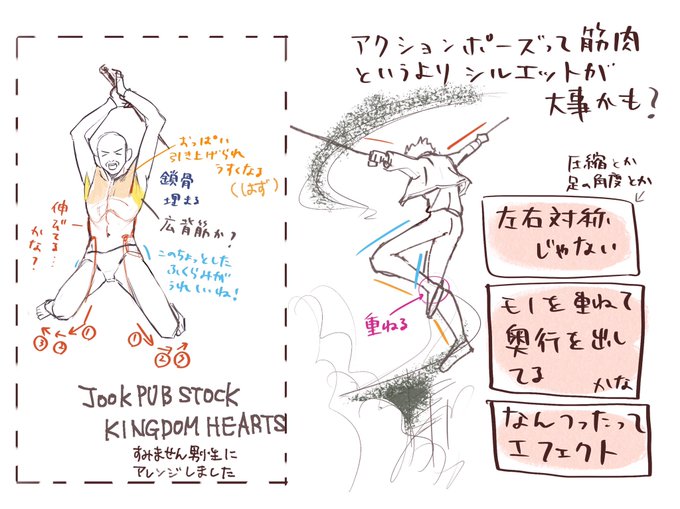 アクションポーズって筋肉
というよりシルエットが
大事かも?
おっぱい
引き上げられ
うすくなる
(はず)
鎖骨
埋まる
広背筋か?
伸びてる…
かな?
このちょっとした
ふくらみが
うれしいね!
① ② ③
① ② ③
JookPUBSTOCK
KINGDOM HEARTS
すみません男性に
アレンジしました
重ねる
圧縮とか
足の角度とか
左右対称
じゃない
モノを重ねて
奥行を出し
てる かな
なんつったって
エフェクト